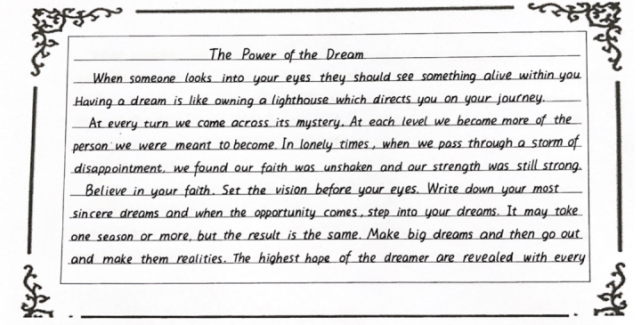 The Power of the Dream
When someone looks into your eyes they should see something alive within you.
Having a dream is like owning a lighthouse which directs you on your journey.
At every turn we come across its mystery. At each level we become more of the
person we were meant to become. In lonely times, when we pass through a storm of
disappointment, we found our faith was unshaken and our strength was still strong.
Believe in your faith. Set the vision before your eyes. Write down your most
sincere dreams and when the opportunity comes, step into your dreams. It may take
one season or more, but the result is the same. Make big dreams and then go out
and make them realities. The highest hope of the dreamer are revealed with every